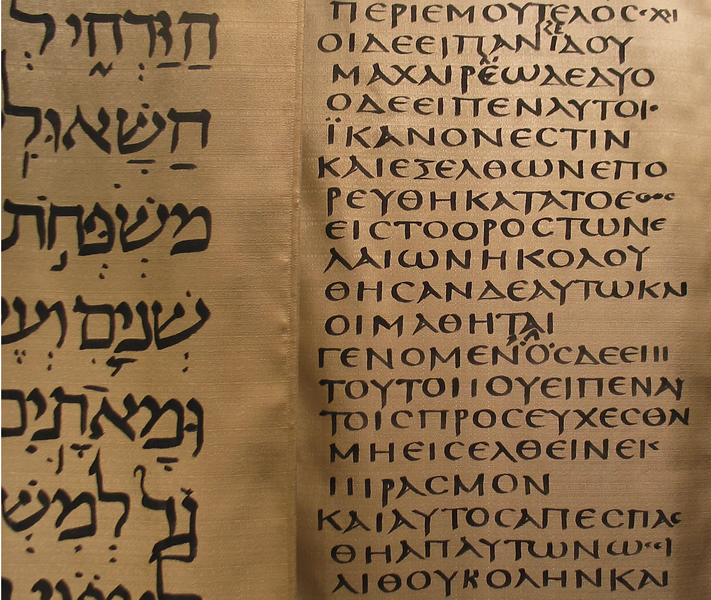 הַזַּרְחִי ל
הַשָּׁאוּלִ
מִשְׁפְּחֹת
שְׁנַיִם וְעֶ
וּמָאתָיִם
גָד לְמִשְׁ
ΠΕΡΙΕΜΟΥΤΕΛΟϹΕΧΙ
ΟΙΔΕΕΙΠΑΝΚΕΙΔΟΥ
ΜΑΧΑΙΡΑΙΩΔΕΔΥΟ
ΟΔΕΕΙΠΕΝΑΥΤΟΙϹ
ΪΚΑΝΟΝΕϹΤΙΝ
ΚΑΙΕΞΕΛΘΩΝΕΠΟ
ΡΕΥΘΗΚΑΤΑΤΟΕΘΟϹ
ΕΙϹΤΟΟΡΟϹΤΩΝΕ
ΛΑΙΩΝΗΚΟΛΟΥ
ΘΗϹΑΝΔΕΑΥΤΩΚΑΙ
ΟΙΜΑΘΗΤΑΙ
ΓΕΝΟΜΕΝΟϹΔΕΕΠΙ
ΤΟΥΤΟΠΟΥΕΙΠΕΝΑΥ
ΤΟΙϹΠΡΟϹΕΥΧΕϹΘΑΙ
ΜΗΕΙϹΕΛΘΕΙΝΕΙϹ
ΠΙΡΑϹΜΟΝ
ΚΑΙΑΥΤΟϹΑΠΕϹΠΑϹ
ΘΗΑΠΑΥΤΩΝΩϹΙ
ΛΙΘΟΥΒΟΛΗΝΚΑΙ